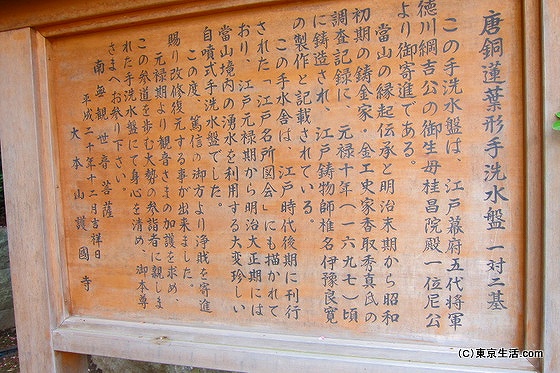 唐銅蓮葉形手洗水盤 一対二基
この手洗水盤は、江戸幕府五代将軍
徳川綱吉公の御生母桂昌院殿一位尼公
より御寄進である。
當山の縁起伝承と明治末期から昭和
初期の鋳金家・金工史家香取秀真氏の
調査記録に、元禄十年(一六九七)頃
に鋳造され、江戸鋳物師椎名伊豫良寛
の製作と記載されている。
この手水舎は、江戸時代後期に刊行
された「江戸名所図会」にも描かれて
おり、江戸元禄期から明治大正期には
當山境内の湧水を利用する大変珍しい
自噴式手洗水盤でした。
この度、篤信の御方より浄賊を寄進
賜り改修復元する事が出来ました。
元禄期より観音さまの加護を求め、
この参道を歩む大勢の参詣者に親しま
れた手洗水盤にて身心を清め、御本尊
さまへお参り下さい。
南無観世音菩薩
平成二十年十二月吉祥日
大本山護國寺
(C)東京生活.com